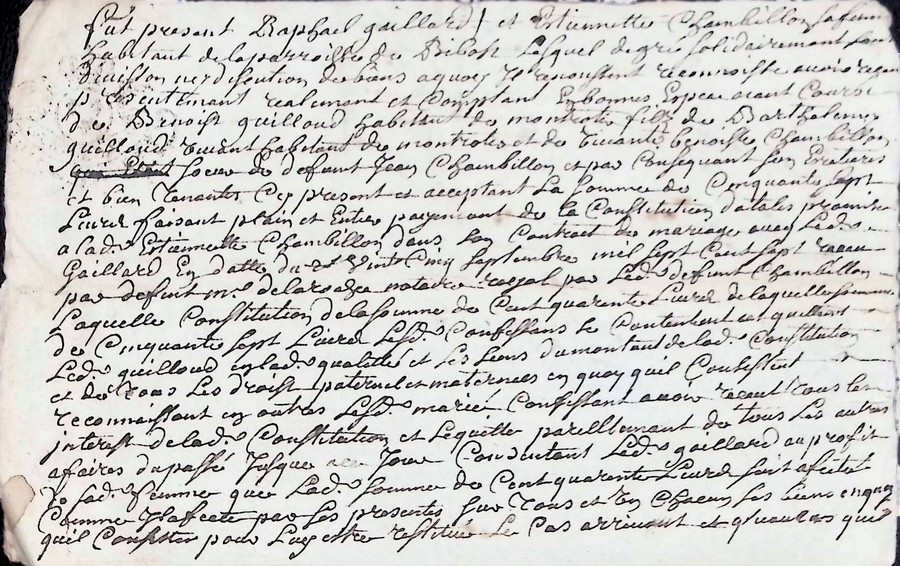 fut present Raphael gaillard et Etiennette Chambillon sa fem
habitant de la parroisse de Bibost Lesquel de gré solidairement sans
division ny discution de biens a quoy Ils renonssent reconnoisse avoir reçeu
presentemant realemant et Comptant En bonnes Espece aiant Cours
de Benoist guilloud habitant de montrotes fils de Bartholemy
guilloud vivent habitant de montrotes et de vivante benoiste Chambillon
soeur de defunt Jean Chambillon et par Consequant son Eretieres
et bien Tenante Cy present et acceptant La somme de Cinquante sept
Livres faisant plain et Entier payemant de la Constitution dotale
a lad.e Estiennette Chambillon dans son Contract de mariage avec Led.
Gaillard En datte du vint Cinq septembre mil sept Cent sept receu
par defunt m.e notaire royal par Led. defunt Chambillon
Laquelle Constitution de la somme de Cent quarante Livres de laquelle somme
de Cinquante sept Livres Lesd. Confessans se Contentent et quittent
Led. guilloud en lad. qualitté et Les siens du montant de lad. Constitution
et de tous Les droist paternel et maternels en quoy quil Consistent
reconnoissant en outres Lesd. mariés Confessant avoir receut tous les
interest de lad. Constitution et Lequelle pareillemant de tous Les autres
afaires du passé Jusque a ce Jour Consentant Led. gaillard au profit
de sad. femme que Lad. somme de Cent quarante Livres soit afectét
Comme Il afecte par Les presentes sur Tous et Un Chacun ses biens en quoy
quil Consistes pour Luy estre restitué Le Cas arrivant et